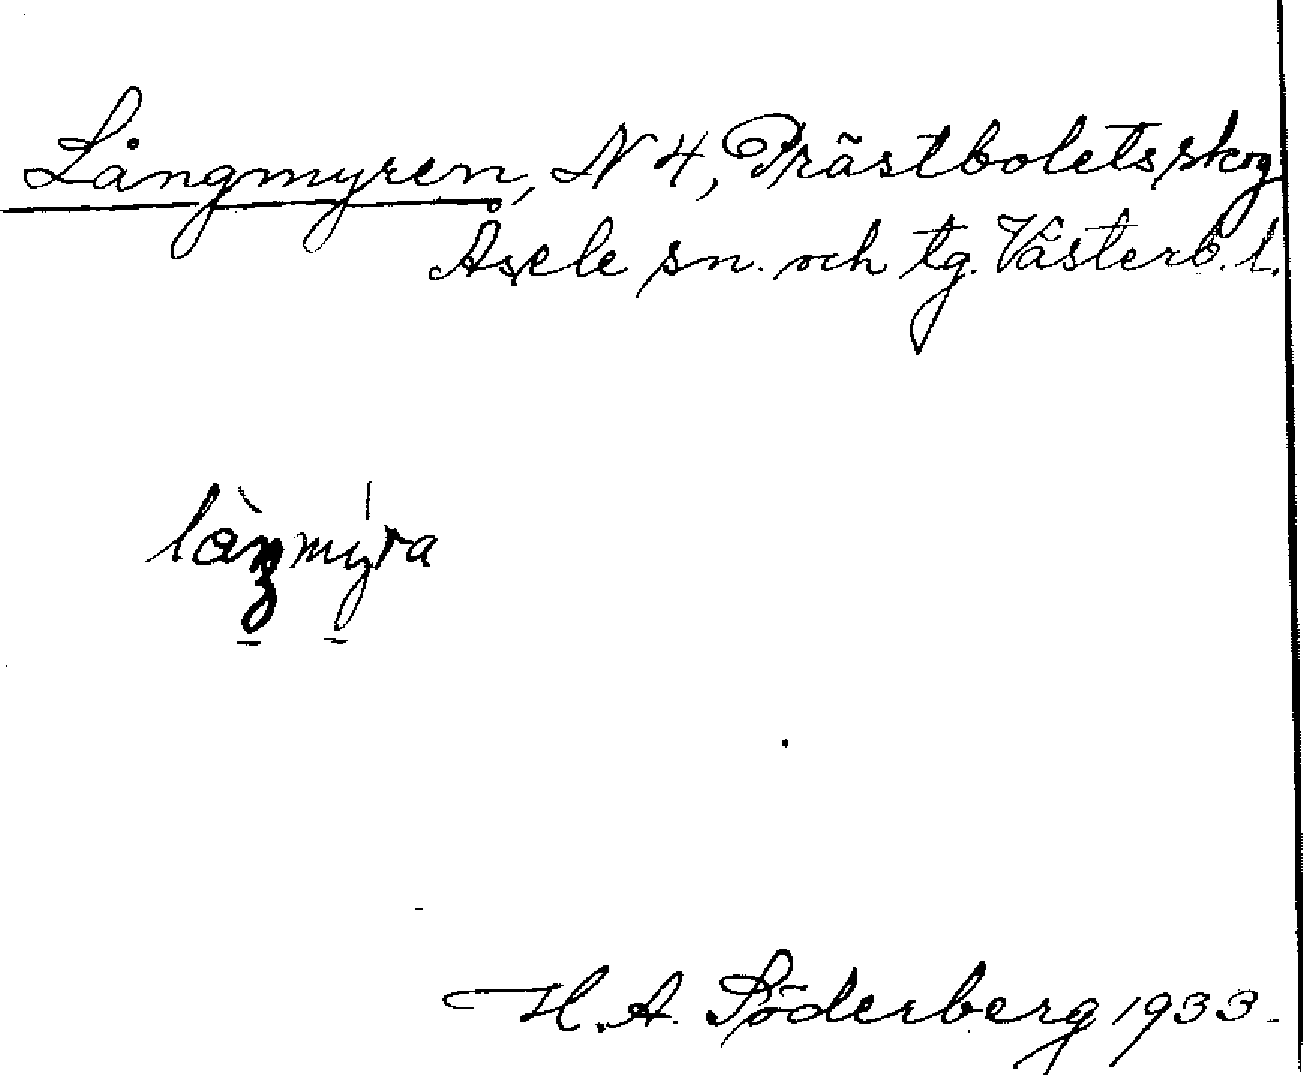 Långmyren, N 4, Prästbolets skog
Åsele sn. och tg. Västerb. l.
làŋmy̍ra
H. A. Söderberg 1933.